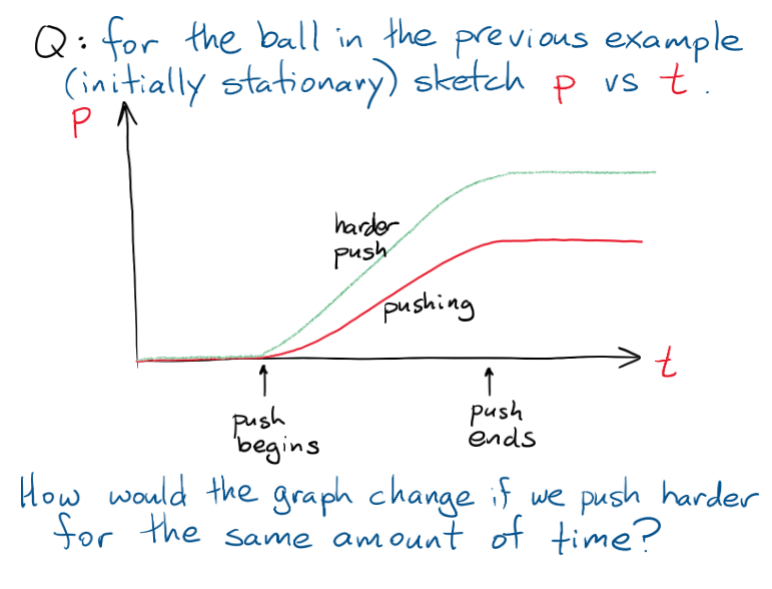 Q: for the ball in the previous example
(initially stationary) sketch p vs t.
p
harder
push
pushing
t
push
begins
push
ends
How would the graph change if we push harder
for the same amount of time?